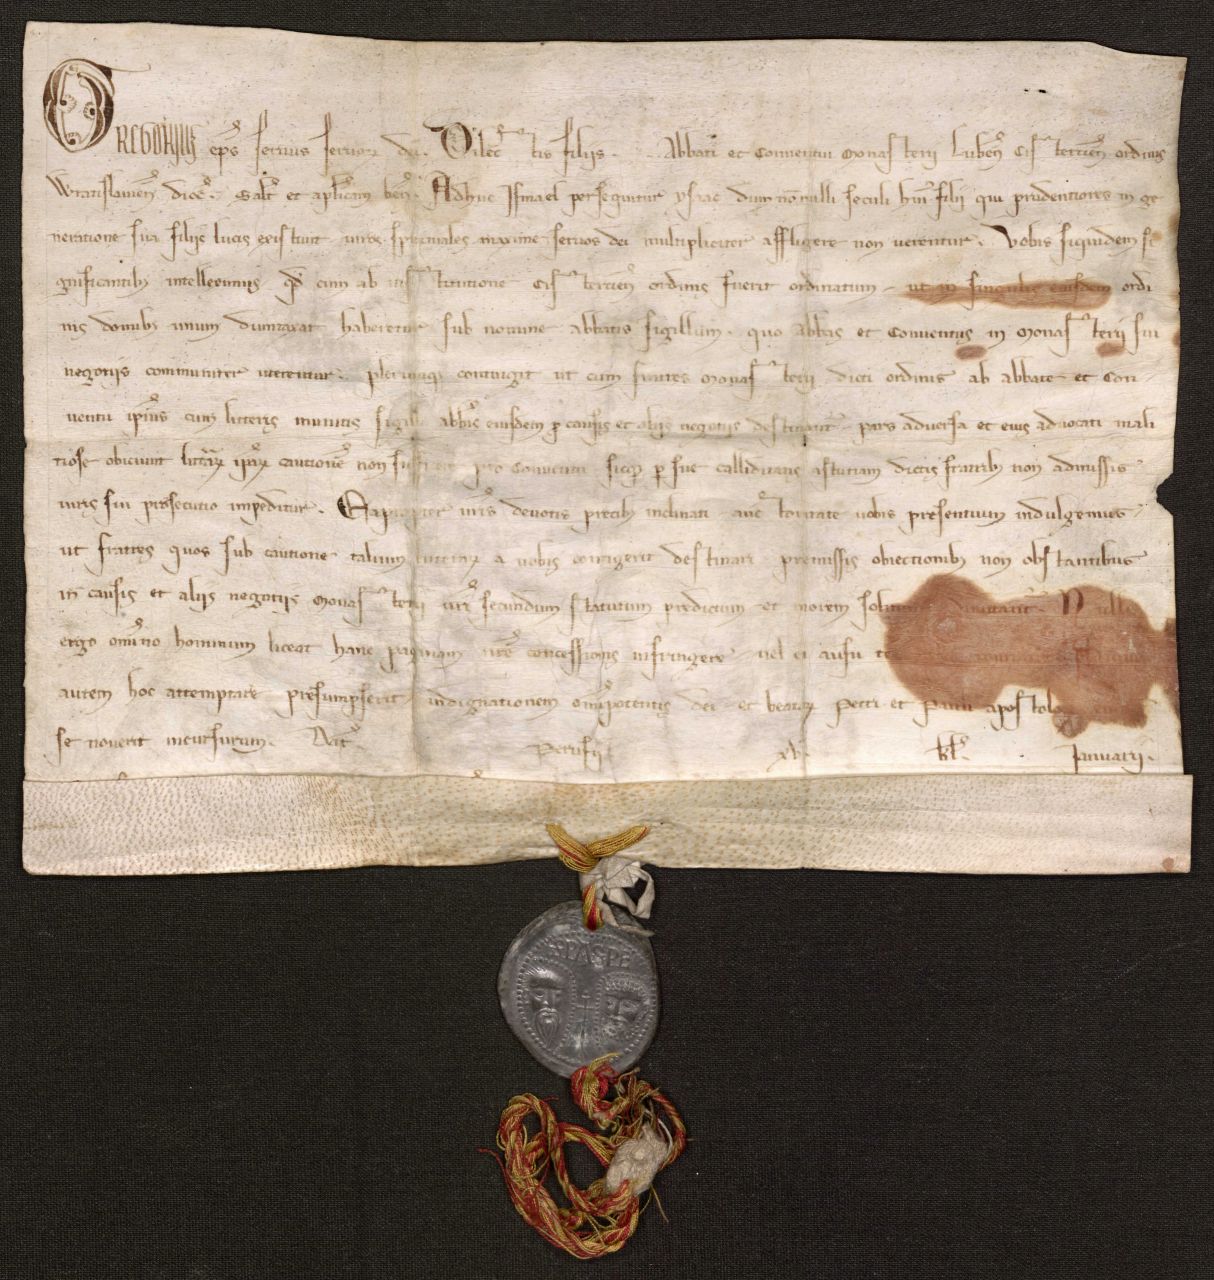 GREGORIUS ep̄s servus servor̄ dei. Dilectis filiis .. Abbati et Conventui Monasterii Lubeñ Cistercieñ ordinis
Wratislavieñ dioc̄. Salt̄ et ap̄licam beñ. Adhuc Ismael persequitur ysaac dum nonnulli seculi hui᷒ filii qui prudentiores in ge
neratione sua filiis lucis existunt viros spirituales maxime servos dei multipliciter affligere non verentur. Vobis siquidem si
gnificantib; intelleximus qd̄ cum ab institutione Cistercieñ ordinis fuerit ordinatum ut in singulis eiusdem ordi
nis domib; unum dumtaxat haberetur sub nomine abbatis sigillum. quo Abbas et Conventus in Monasterii sui
negotiis communiter uterentur. plerumq; contingit ut cum fratres Monasterii dicti ordinis ab abbate et Con
ventu ipsius cum litteris munitis sigillo abb̄is eiusdem p̱ causis et aliis negotiis destinant̄ pars adversa et eius advocati mali
tiose obiciunt litterar̄ ipsar̄ cautionem non sufficere pro Conventu. sicq; p̱ sue calliditatis astutiam dictis fratrib; non admissis
iuris sui prosecutio impeditur. Eapropter vr̄is devotis precib; inclinati auctoritate vobis presentium indulgemus
ut fratres quos sub cautione talium litterar̄ a vobis contigerit destinari premissis obiectionib; non obstantibus
in causis et aliis negotiis Monasterii vr̄i secundum statutum predictum et morem solitum admittant̄. Nulli
ergo omnino hominum liceat hanc paginam nr̄e concessionis infringere vel ei ausu te contraire
autem hoc attemptare presumpserit indignationem omnipotentis dei et beator̄ Petri et Pauli apostolor̄
se noverit incursurum. Dat̄ Perusii xv kl̄. Januarii.
SPASPE